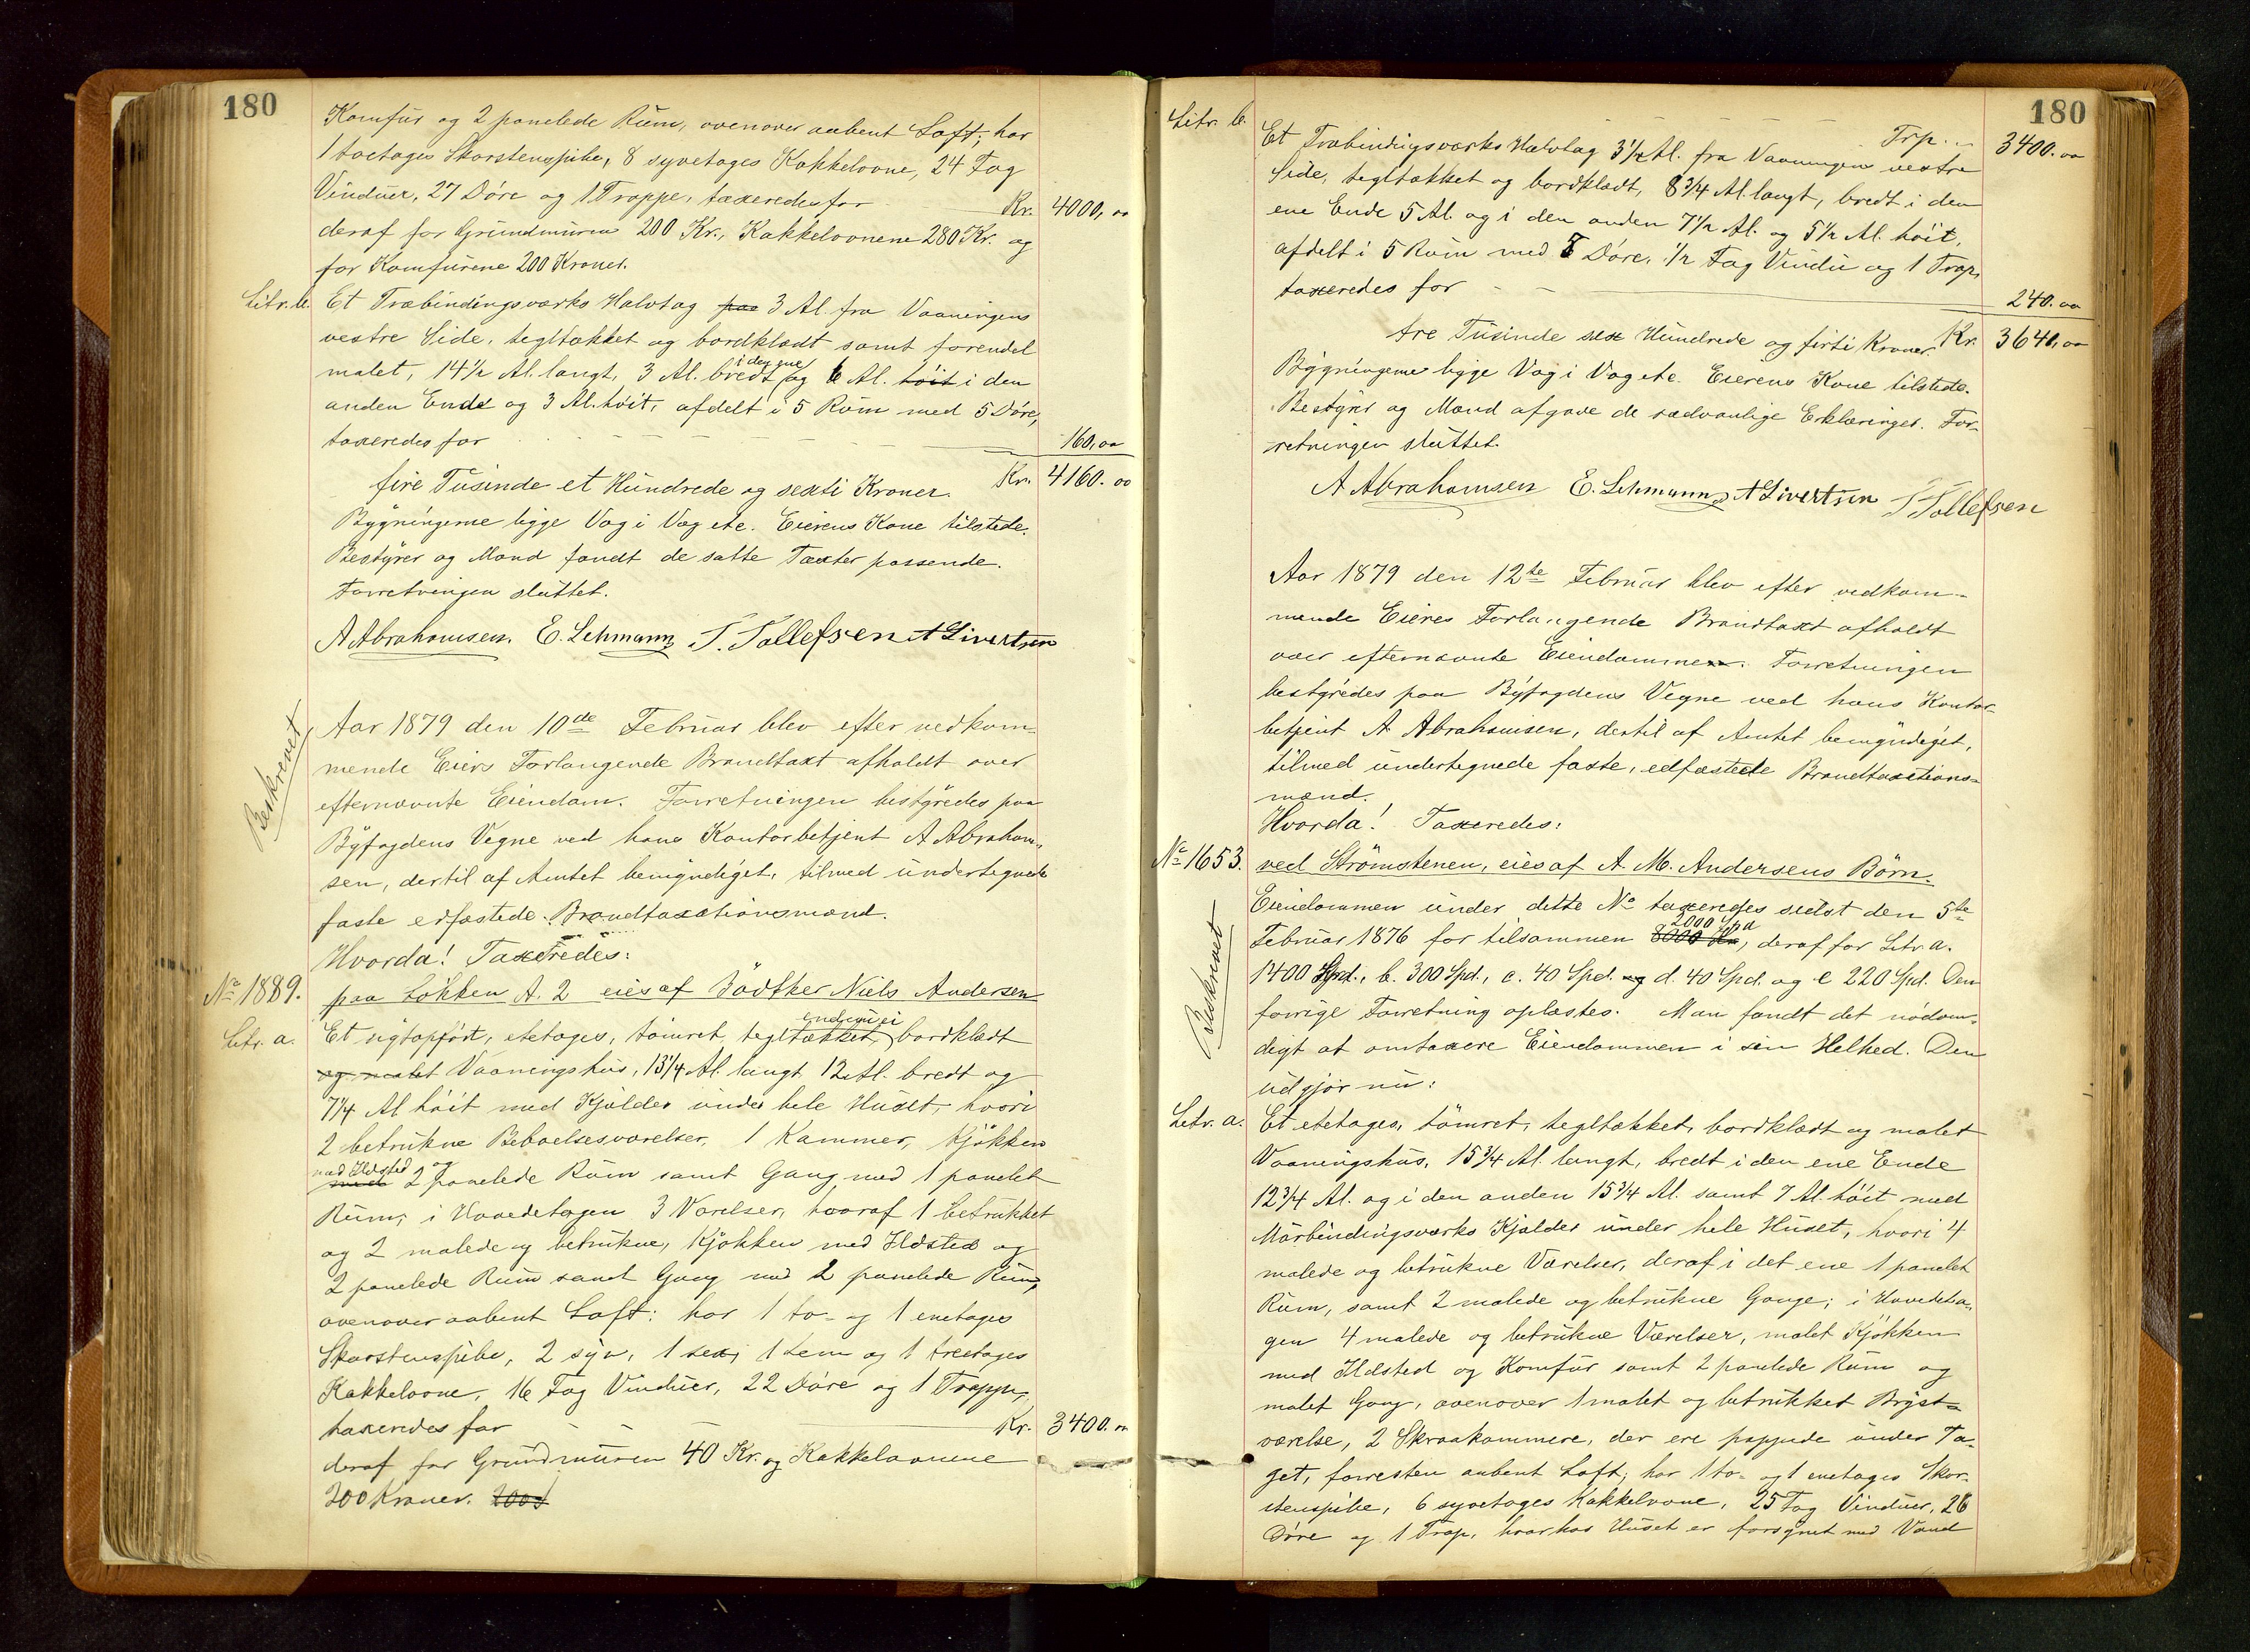 180
Komfur og 2 panelede Rum, ovenover aabent Loft; har
1 toetages Skorstenspibe, 8 syvetages Kakkelovne, 24 Fag
Vinduer, 27 Döre og 1 Trappe, taxeredes for Kr. 4000,00
deraf for Grundmuren 200 Kr., Kakkelovnene 280 Kr. og
for Komfurene 200 Kroner.
Litr. b. Et Træbindingsværks Halvtag paa 3 Al. fra Vaaningens
vestre Side, tegltækket og bordklædt samt forendel
malet, 14 1/2 Al. langt, 3 Al. bredt i den ene og 6 Al. höit i den
anden Ende og 3 Al. höit, afdelt i 5 Rum med 5 Döre,
taxeredes for 160,00
fire Tusinde et Hundrede og sexti Kroner. Kr. 4160.00
Bygningerne ligge Væg i Væg etc. Eierens Kone tilstede.
Bestyrer og Mænd fandt de satte Taxter passende.
Forretningen sluttet.
A Abrahamsen. E. Lehmann T. Tollefsen A Sivertsen
Beskrevet
Aar 1879 den 10de Februar blev efter vedkom-
mende Eiers Forlangende Brandtaxt afholdt over
efternævnte Eiendom. Forretningen bestyredes paa
Byfogdens Vegne ved hans Kontorbetjent A Abraham-
sen, dertil af Amtet bemyndiget, tilmed undertegnede
faste edfæstede Brandtaxationsmænd.
Hvorda! Taxeredes:
No 1889. paa Lökken A. 2 eies af Bödtker Niels Andersen
Litr. a. Et nyopfört, etetages, tömret, tegltækket, endnu ei bordklædt
og malet Vaaningshus, 13 1/4 Al. langt 12 Al. bredt og
7 1/4 Al höit med Kjælder under hele Huset, hvori
2 betrukne Beboelsesværelser, 1 Kammer, Kjökken
med Ildsted og med 2 panelede Rum samt Gang med 1 panelet
Rum; i Hovedetagen 3 Værelser, hvoraf 1 betrukket
og 2 malede og betrukne, Kjökken med Ildsted og
2 panelede Rum samt Gang med 2 panelede Rum,
ovenover aabent Loft: har 1 to- og 1 enetages
Skorstenspibe, 2 syv, 1 sex, 1 fem og 1 treetages
Kakkelovne, 16 Fag Vinduer, 22 Döre og 1 Trappe,
taxeredes for Kr. 3400.00
deraf for Grundmuren 40 Kr. og Kakkelovnene
200 Kroner.
180
Trp. 3400.00
Litr. b. Et Træbindingsværks Halvtag 3 1/2 Al. fra Vaaningens vestre
Side, tegltækket og bordklædt, 8 3/4 Al. langt, bredt i den
ene Ende 5 Al. og i den anden 7 1/2 Al. og 5 1/2 Al. höit,
afdelt i 5 Rum med 8 Döre, 1/2 Fag Vindu og 1 Trap,
taxeredes for 240.00
tre Tusinde sex Hundrede og firti Kroner. Kr. 3640,00
Bygningerne ligge Væg i Væg etc. Eierens Kone tilstede.
Bestyrer og Mænd afgave de sædvanlige Erklæringer. For-
retningen sluttet.
A Abrahamsen E. Lehmann A Sivertsen T Tollefsen
Aar 1879 den 12te Februar blev efter vedkom-
mende Eieres Forlangende Brandtaxt afholdt
over efternævnte Eiendomme. Forretningen
bestyredes paa Byfogdens Vegne ved hans Kontor-
betjent A Abrahamsen, dertil af Amtet bemyndiget,
tilmed undertegnede faste, edfæstede Brandtaxations-
mænd.
Hvorda! Taxeredes:
No 1653. ved Strömstenen, eies af A. M. Andersens Börn.
Beskrevet
Eiendommen under dette No taxeredes sidst den 5te
Februar 1876 for tilsammen 8000 Kr 2000 Spd, deraf for Litr. a.
1400 Spd., b. 300 Spd., c. 40 Spd. og d. 40 Spd. og e 220 Spd. Den
forrige Forretning oplæstes. Man fandt det nödven-
digt at omtaxere Eiendommen i sin Helhed. Den
udgjör nu:
Litr. a. Et etetages, tömret, tegltækket, bordklædt og malet
Vaaningshus, 15 3/4 Al. langt, bredt i den ene Ende
12 3/4 Al. og i den anden 15 3/4 Al. samt 7 Al. höit med
Murbindingsværks Kjælder under hele Huset, hvori 4
malede og betrukne Værelser, deraf i det ene 1 panelet
Rum, samt 2 malede og betrukne Gange; i Hovedeta-
gen 4 malede og betrukne Værelser, malet Kjökken
med Ildsted og Komfur samt 2 panelede Rum og
malet Gang, ovenover 1 malet og betrukket Bryst-
værelse, 2 Skraakammere, der ere pappede under Ta-
get, forresten aabent Loft; har 1 to- og 1 enetages Skor-
stenspibe, 6 syvetages Kakkelovne, 25 Fag Vinduer, 26
Döre og 1 Trap, hvorhos Huset er forsynet med Vand